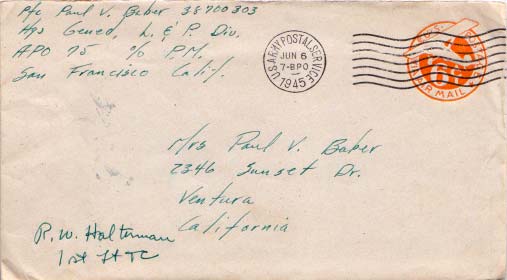 Pfc Paul V. Baber 38700303
Hqs Gened, L. & P. Div.
APO 75 % P.M.
San Francisco Calif.
U.S. ARMY POSTAL SERVICE
JUN 6
7-BPO
1945
U.S. POSTAGE
VIA AIR MAIL
Mrs Paul V. Baber
2346 Sunset Dr.
Ventura
California
R. W. Halterman
1st Lt TC